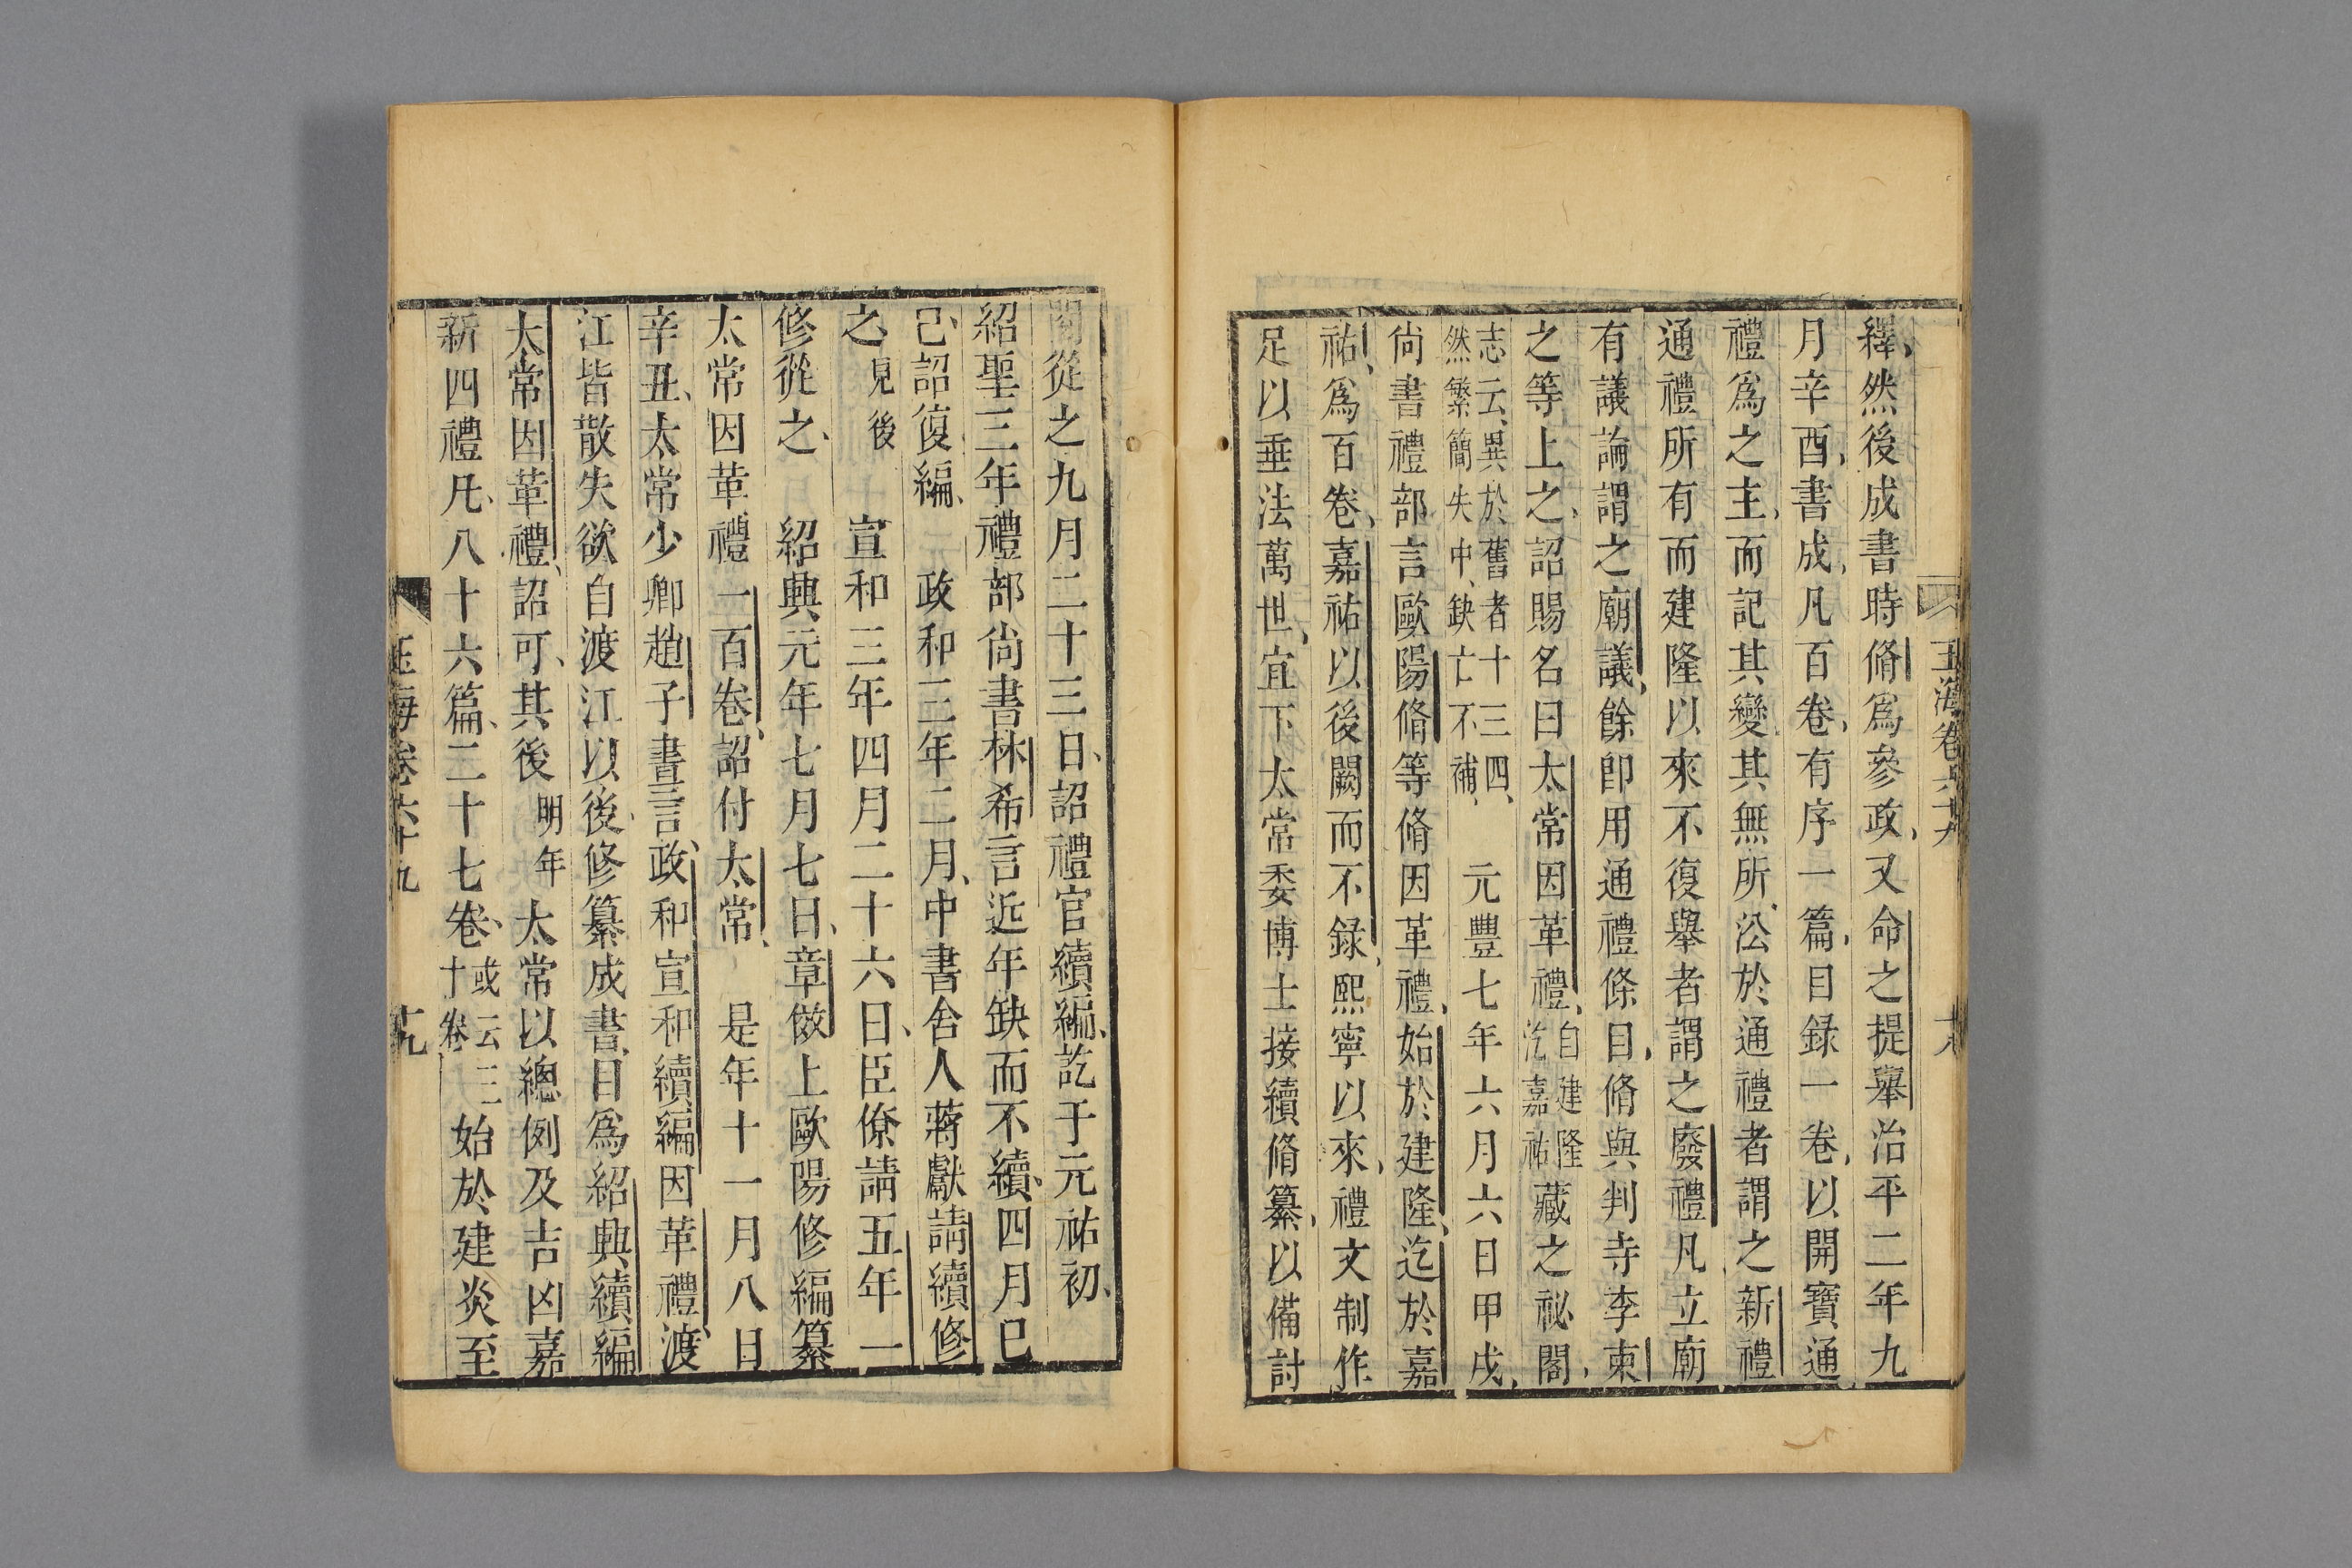 玉海卷六十九
十八
繹然後成書時脩爲參政又命之提舉治平二年九
月辛酉書成凡百卷有序一篇目録一卷以開寶通
禮爲之主而記其變其無所㳂於通禮者謂之新禮
通禮所有而建隆以來不復舉者謂之廢禮凡立廟
有議論謂之廟議餘卽用通禮條目脩與判寺李柬
之等上之詔賜名曰太常因革禮自建隆汔嘉祐藏之祕閣
志云異於舊者十三四然繁簡失中缺亡不補元豐七年六月六日甲戌
尚書禮部言歐陽脩等脩因革禮始於建隆迄於嘉
祐爲百卷嘉祐以後闕而不録熙寧以來禮文制作
足以垂法萬世宜下太常委博士接續脩纂以備討
閱從之九月二十三日詔禮官續編訖于元祐初
紹聖三年禮部尚書林希言近年缺而不續四月巳
己詔復編 政和三年二月中書舍人蔣猷請續修
之見後 宣和三年四月二十六日臣僚請五年一
修從之 紹興元年七月七日章傚上歐陽修編纂
太常因革禮一百卷詔付太常 是年十一月八日
辛丑太常少卿趙子晝言政和宣和續編因革禮渡
江皆散失欲自渡江以後修纂成書目爲紹興續編
太常因革禮詔可其後明年太常以總例及吉凶嘉
新四禮凡八十六篇二十七卷或云三十卷始於建炎至
玉海卷六十九
十九